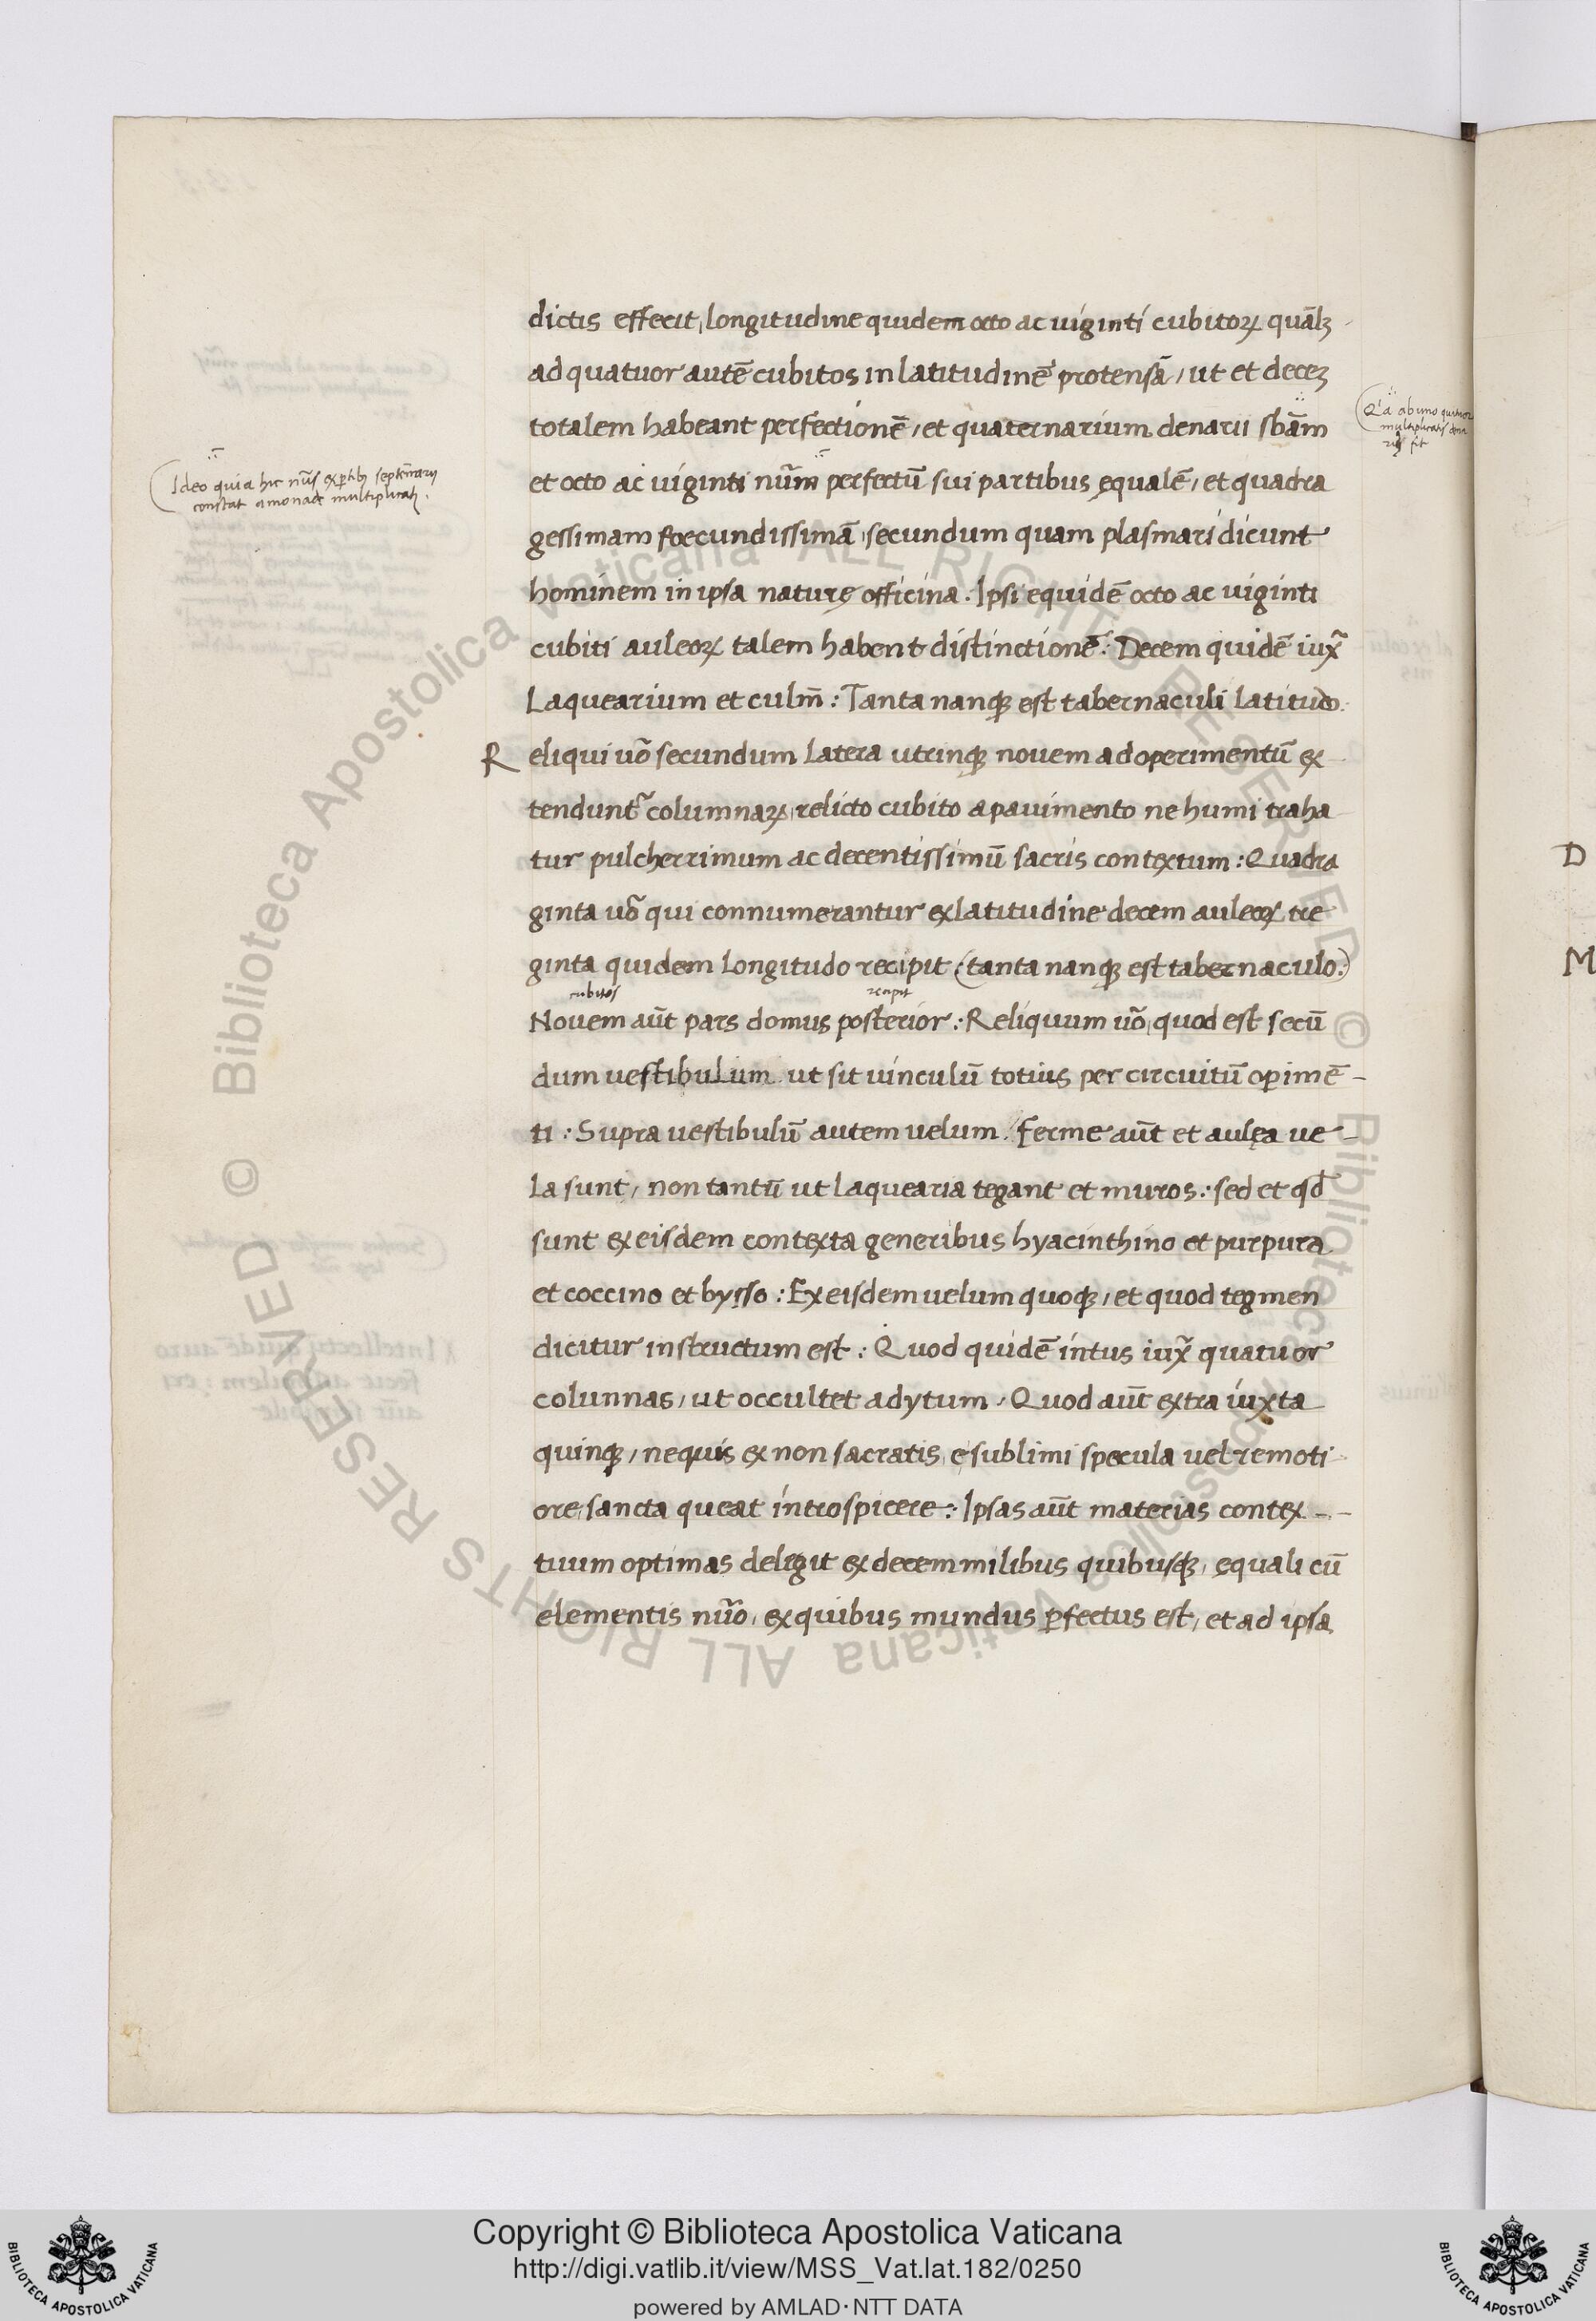 dictis effecit, longitudine quidem octo ac uiginti cubitoꝝ quālꝫ
ad quatuor autē cubitos in latitudinē protensā, ut et deceꝫ
totalem habeant perfectionē, et quaternarium denarii sbām
et octo ac uiginti nūm perfectū sui partibus ęqualē, et quadra
gessimam foecundissimā, secundum quam plasmari dicunt
hominem in ipsa naturę officina. Ipsi equidē octo ac uiginti
cubiti auleoꝝ talem habent distinctionē: Decem quidē iux̄
Laquearium et culm̄: Tanta nanqꝫ est tabernaculi latitudo.
Reliqui uō secundum latera utrinqꝫ nouem ad operimentū ex
tendunt̄ columnaꝝ, relicto cubito a pauimento ne humi traha
tur pulcherrimum ac decentissimū sacris contextum: Quadra
ginta uō qui connumerantur ex latitudine decem auleoꝝ tre
ginta quidem longitudo recipit (tanta nanqꝫ est tabernaculo.)
cubitos recipit
Nouem aūt pars domus posterior: Reliquum uō, quod est secū
dum uestibulum ut sit uinculū totius per circuitū operimē-
ti: Supra uestibulū autem uelum. Ferme aūt et aulęa ue-
la sunt, non tantū ut laquearia tegant et muros: sed et qd
sunt ex eisdem contexta generibus hyacinthino et purpura
et coccino et bysso: Ex eisdem uelum quoqꝫ, et quod tegmen
dicitur instructum est: Quod quidē intus iux̄ quatuor
colunnas, ut occultet adytum, Quod aūt extra iuxta
quinqꝫ, ne quis ex non sacratis, e sublimi specula uel remoti
ore, sancta queat introspicere: Ipsas aūt materias contex-
tuum optimas deligit ex decem milibus quibusqꝫ, ęquali cū
elementis nūo, ex quibus mundus ꝑfectus est, et ad ipsa
Ideo quia hic nūs septenarij
constat a monade
Q'a ab uno
multiplicatis
fit
D
M
© Biblioteca Apostolica Vaticana ALL RIGHTS RESERVED © Biblioteca Apostolica Vaticana ALL RIGHTS RESERVED
BIBLIOTECA APOSTOLICA VATICANA
Copyright © Biblioteca Apostolica Vaticana
http://digi.vatlib.it/view/MSS_Vat.lat.182/0250
powered by AMLAD·NTT DATA
BIBLIOTECA APOSTOLICA VATICANA